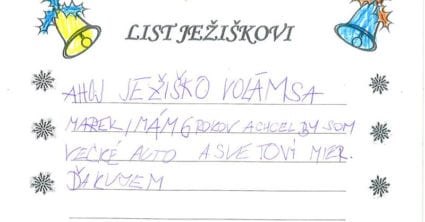 LIST JEŽIŠKOVI
AHOJ JEŽIŠKO VOLÁMSA
MAREK, MÁM 6 ROKOV A CHCEL BY SOM
VEĽKÉ AUTO A SVETOVÍ MIER.
ĎAKUJEM